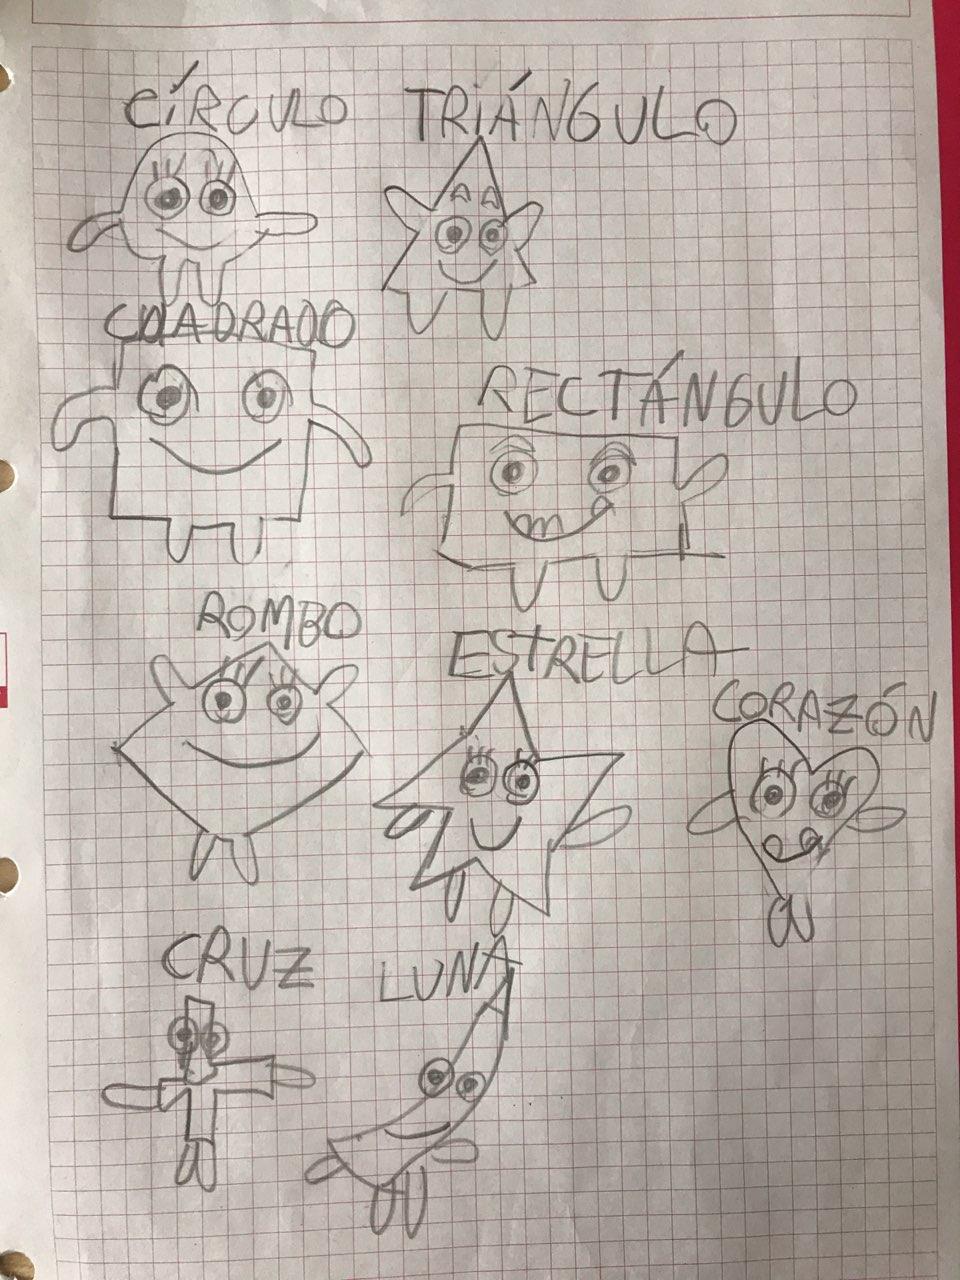 CÍRCULO TRIÁNGULO
CUADRADO
RECTÁNGULO
ROMBO
ESTRELLA
CORAZÓN
CRUZ
LUNA